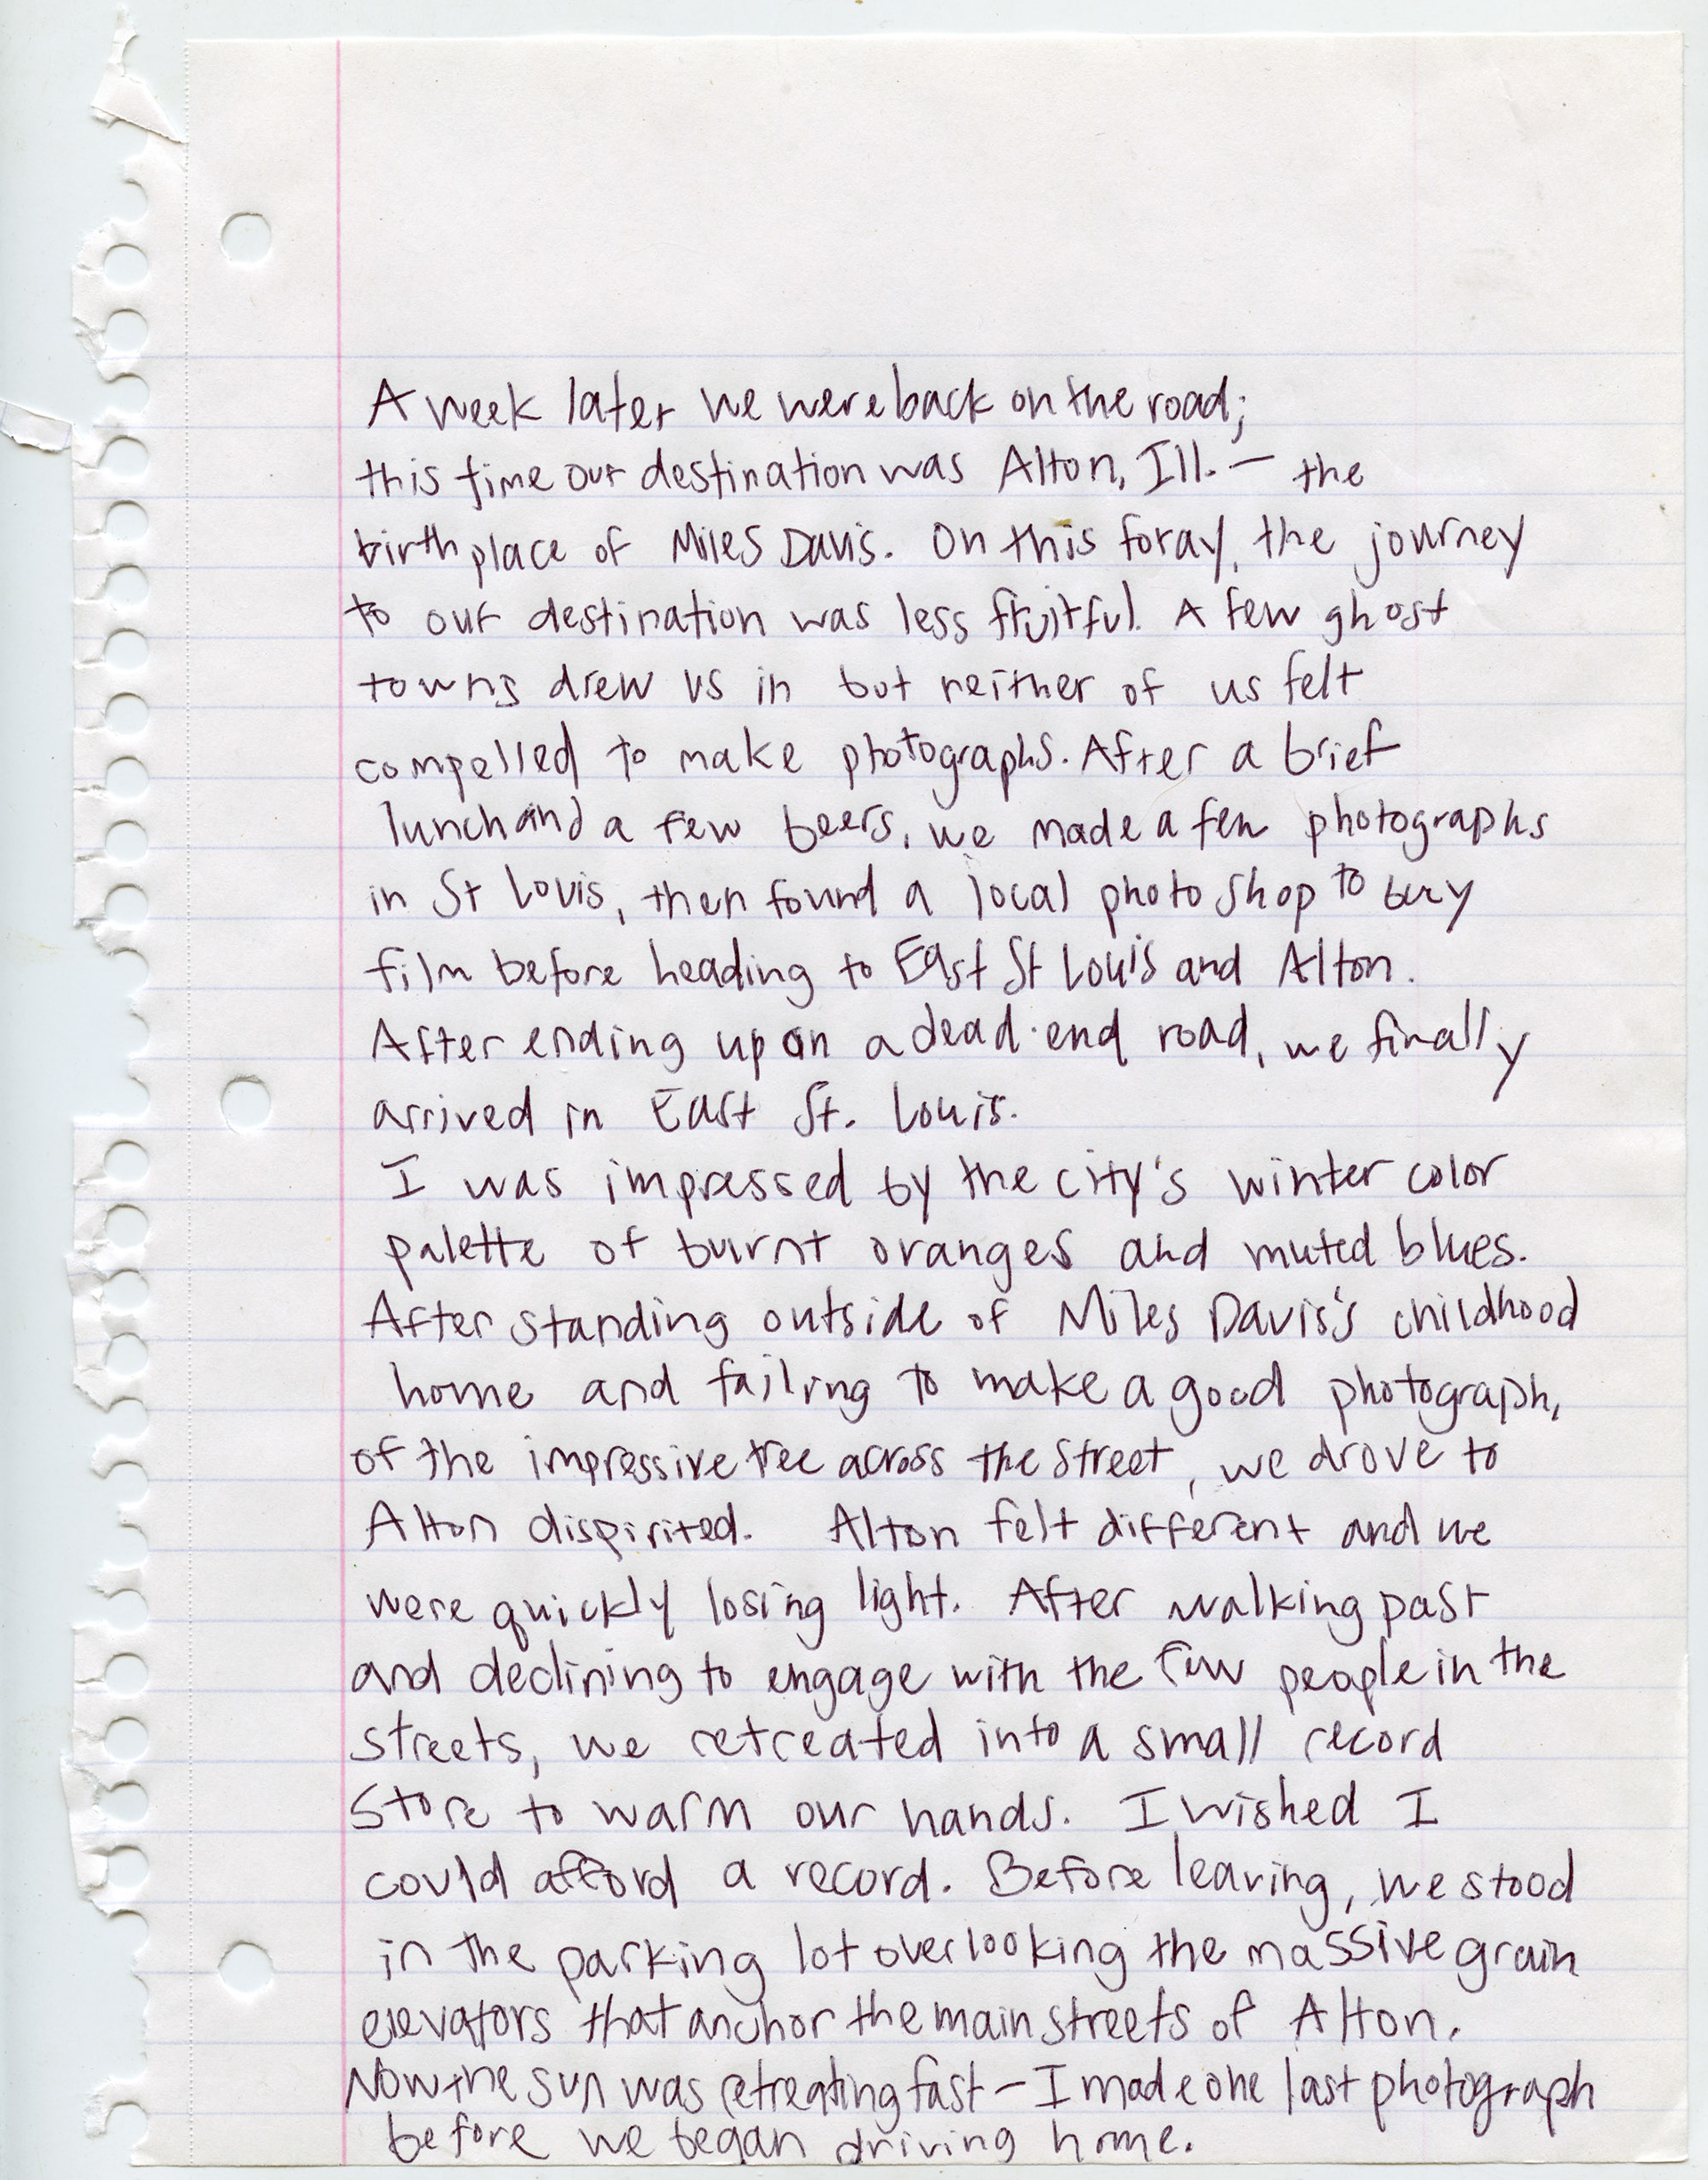 A week later we were back on the road;
this time our destination was Alton, Ill. — the
birthplace of Miles Davis. On this foray, the journey
to our destination was less fruitful. A few ghost
towns drew us in but neither of us felt
compelled to make photographs. After a brief
lunch and a few beers, we made a few photographs
in St Louis, then found a local photo shop to buy
film before heading to East St Louis and Alton.
After ending up on a dead-end road, we finally
arrived in East St. Louis.
I was impressed by the city's winter color
palette of burnt oranges and muted blues.
After standing outside of Miles Davis's childhood
home and failing to make a good photograph,
of the impressive tree across the street, we drove to
Alton dispirited. Alton felt different and we
were quickly losing light. After walking past
and declining to engage with the few people in the
streets, we retreated into a small record
store to warm our hands. I wished I
could afford a record. Before leaving, we stood
in the parking lot overlooking the massive grain
elevators that anchor the main streets of Alton.
Now the sun was retreating fast — I made one last photograph
before we began driving home.